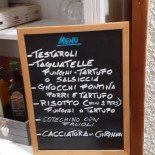 MENU
- TESTAROLI
- TAGLIATELLE
FUNGHI - TARTUFO
O SALSICCIA
- GNOCCHI FONTINA
PORRI E TARTUFO
- RISOTTO (MIN 2 PERS)
FUNGHI O TARTUFO
- COTECHINO CON
FAGIOLI
- CACCIATORA DI CINGHIALE